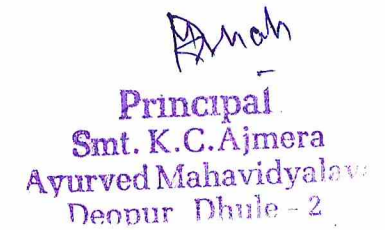 Principal
Smt. K.C.Ajmera
Ayurved Mahavidyalaya
Deopur Dhule - 2